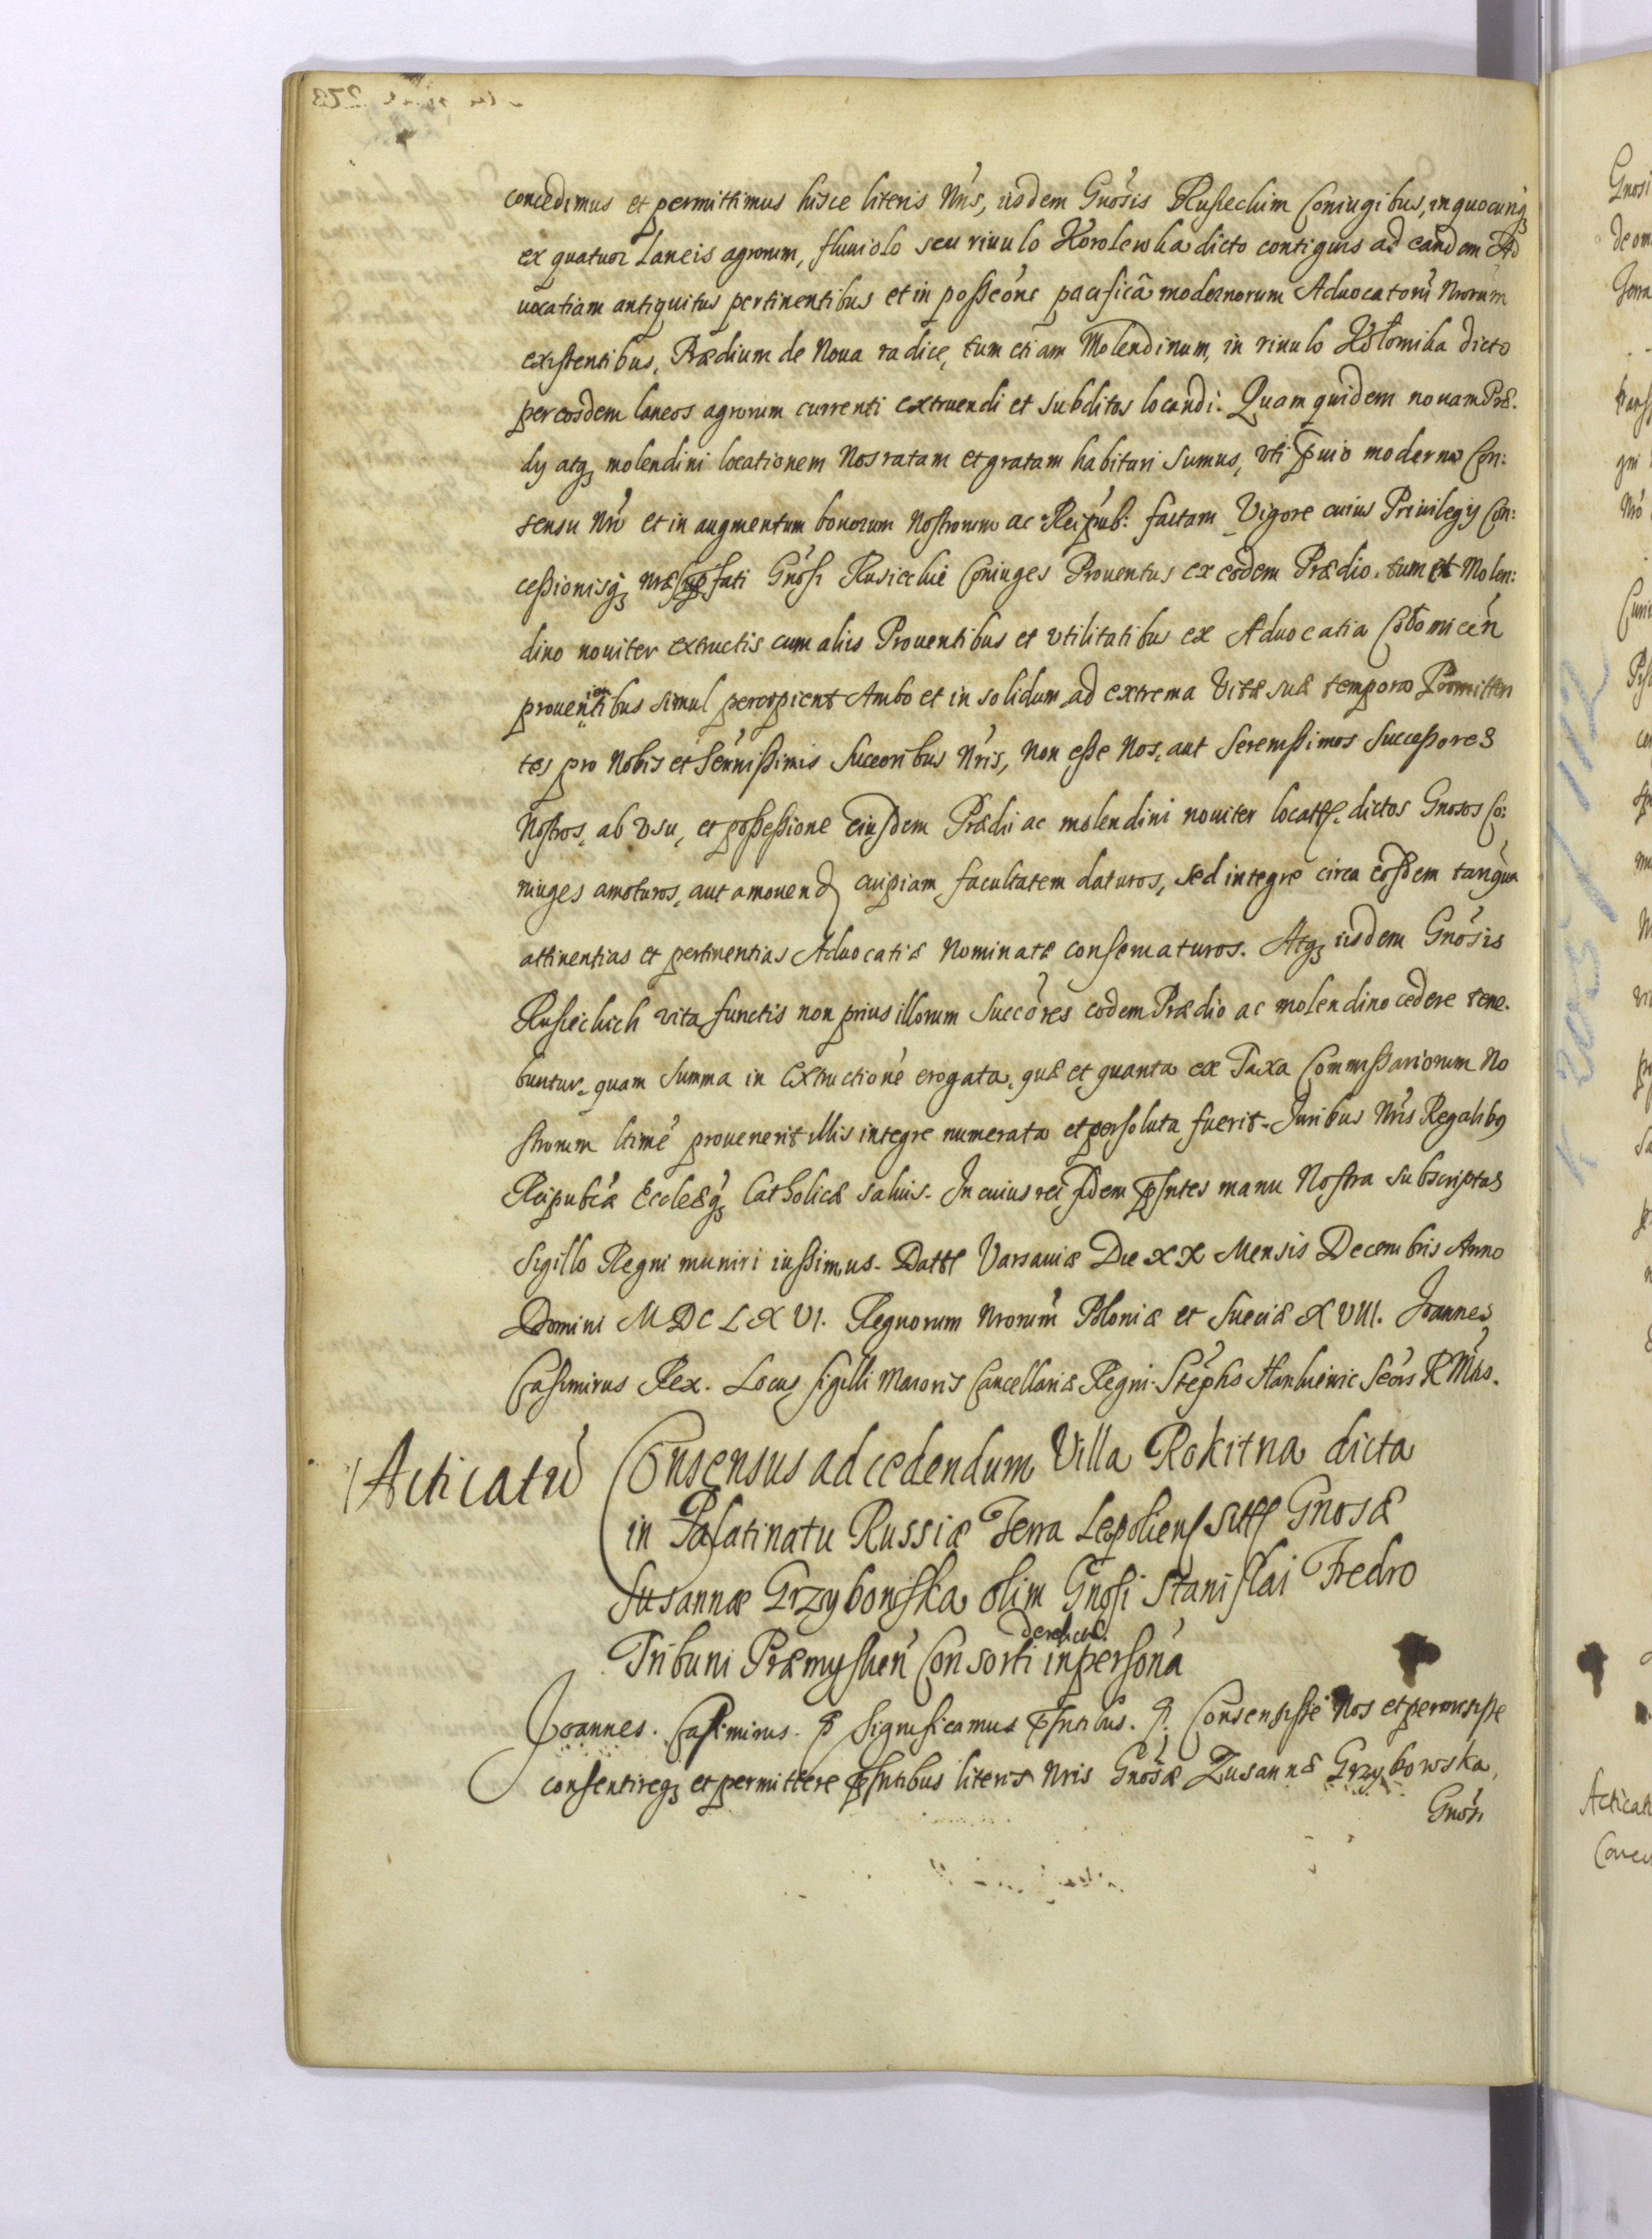 concedimus et permittimus hisce literis Nris, iisdem Gnosis Rusieckim Coniugibus, in quocunq
ex quatuor Laneis agrorum, fluuiolo seu riuulo Korolewka dicto contiguis ad eandem Ad
uocatiam antiquitus pertinentibus et in posseone pacifica modernorum Aduocatoru Nrorum
existentibus, Prædium de Noua radice, tum etiam Molendinum, in riuulo Kołomika dicto
per eosdem laneos agrorum currenti extruendi et subditos locandi. Quam quidem nouam Præ.
dij atq molendini locationem Nos ratam et gratam habituri sumus, vti puio moderno Con:
sensu Nro et in augmentum bonorum Nostrorum ac Reipub: factam Vigore cuius Priuilegij Con:
cessionisq næ fati Gnosi Rusieckie Coniuges Prouentus ex eodem Prædio. tum et Molen:
dino nouiter extructis cum aliis Prouentibus et vtilitatibus ex Aduocatia Cołomicen
prouenientibus simul percipient Ambo et in solidum ad extrema Vitæ suæ tempora Promitten
tes pro Nobis et Sernissimis Succoribus Nris, Non esse Nos, aut Serenissimos Successores
Nostros, ab vsu, et possessione eiusdem Prædii ac molendini nouiter locat. dictos Gnosos Co:
niuges amoturos, aut amouend cuipiam facultatem daturos, sed integre circa eosdem tanqua
attinentias et pertinentias Aduocatiæ Nominatæ conseruaturos. Atq iisdem Gnosis
Rusieckich vita functis non prius illorum Succores eodem Prædio ac molendino cedere tene.
buntur. quam Summa in Extructione erogata, quæ et quanta ex Taxa Commissariorum No
strorum ltime prouenerit illis integre numerata et persoluta fuerit. Juribus Nris Regalibg
Reipubcæ Eccleæq Catholicæ saluis. In cuius rei fidem psntes manu Nostra subscriptas
Sigillo Regni muniri iussimus. Datt Varsauiæ Die XX Mensis Decembris Anno
Domini MDCLXVI. Regnorum Nrorum Poloniæ et Sueciæ XVIII. Joannes
Casimirus Rex. Locus sigilli Maioris Cancellariæ Regni. Stephs Hankieuic Secrs R Mtis.
Acticatu
Consensus ad cedendum Villa Rokitna dicta
in Palatinatu Russiæ Terra Leopoliens sitt Gnosæ
Susannæ Grzybowska olim Gnosi Stanislai Fredro
Tribuni Præmyslien Consorti derelictæ. in persona
Joannes. Casimirus. Significamus psntibus. Consensisse Nos et permisisse
consentireq et permittere psntibus literis Nris Gnosæ Zusannæ Grzybowska,
Gnosi